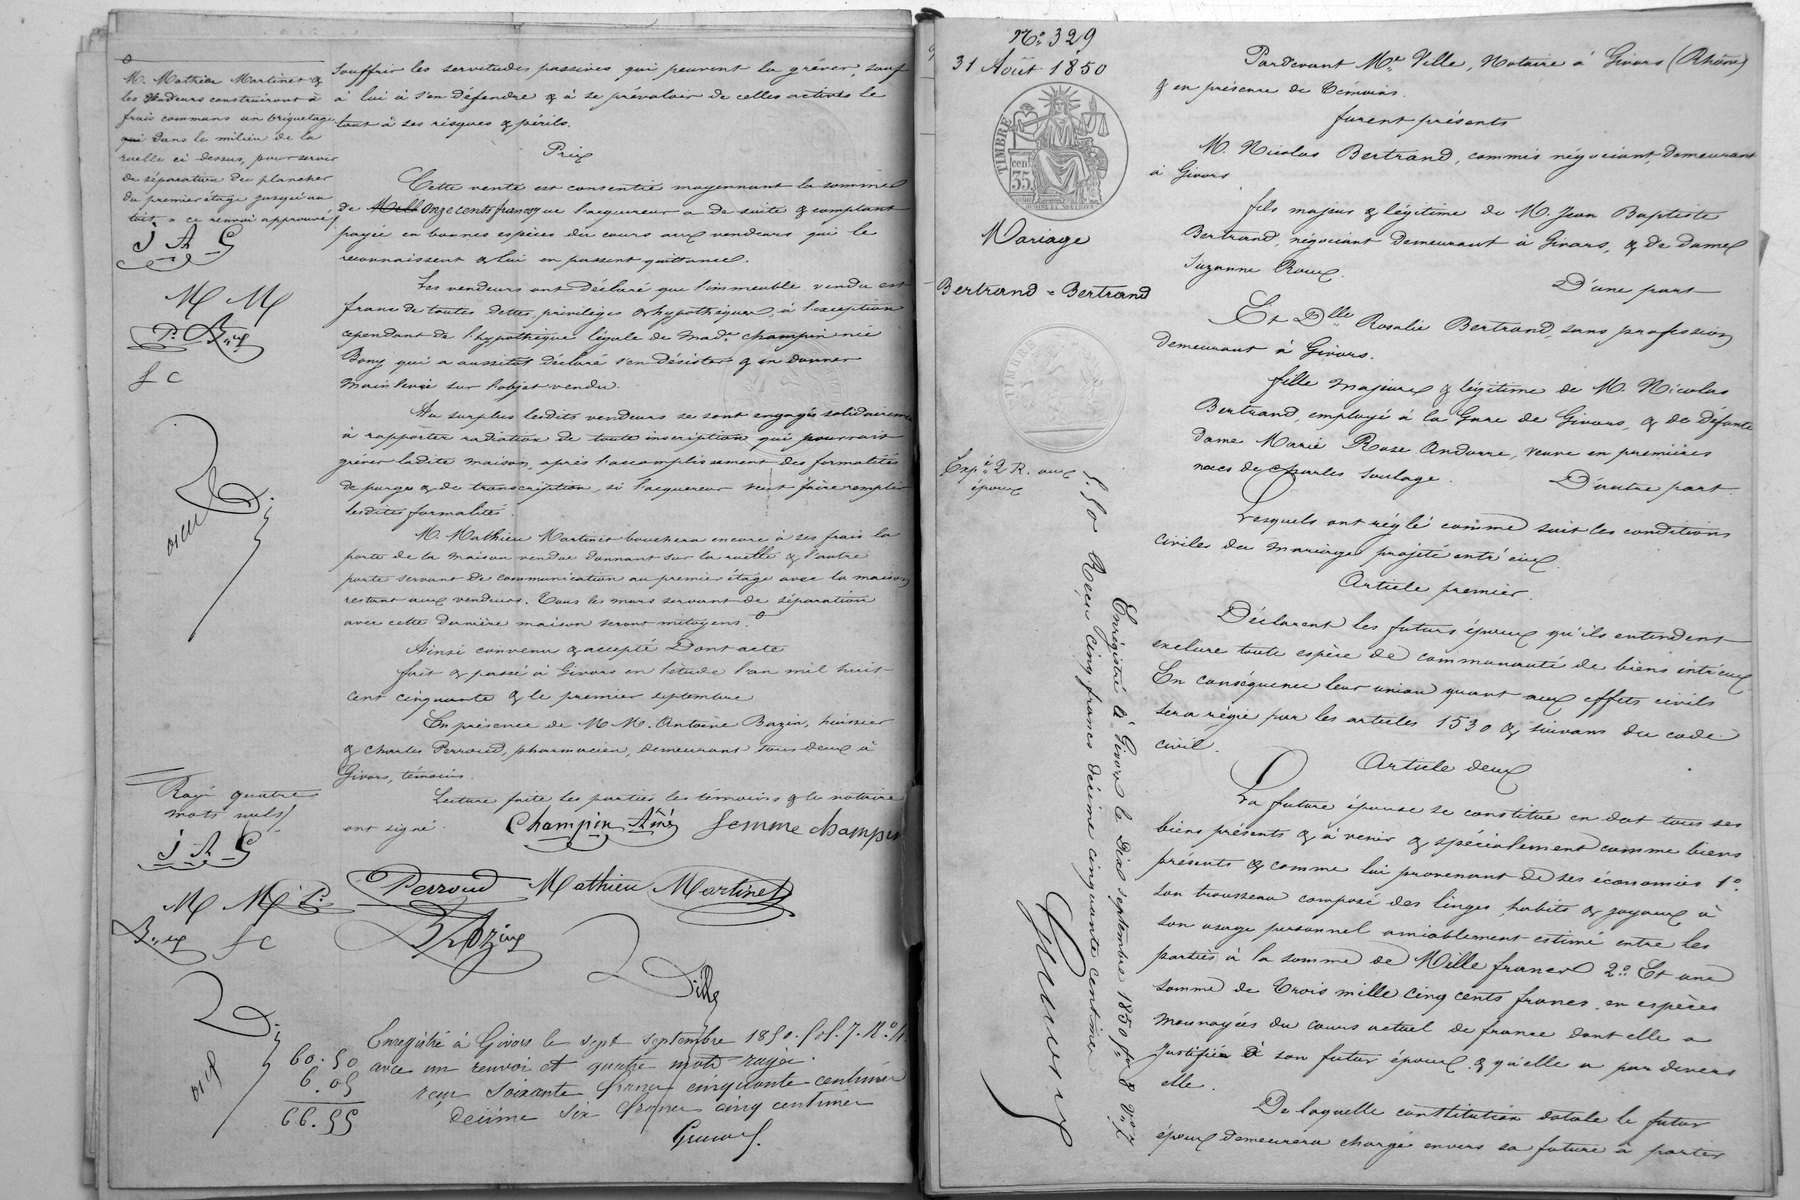 M. Mathieu Martinet &
les vendeurs construiront à
frais communs un briquetage
dans le milieu de la
ruelle ci dessus, pour servir
de séparation du plancher
du premier étage jusqu'au
toit = ce renvoi approuvé
J A G
M M
P. B
f c
Rayé quatre
mots nuls
J A G
M M P.
f c
60.50
6.05
66.55
souffrir les servitudes passives qui peuvent la gréver, sauf
à lui à s'en défendre & à se prévaloir de celles actives le
tout à ses risques & périls.
Prix
Cette vente est consentie moyennant la somme
de Mille Onze cents francs que l'acquereur a de suite & comptant
payée en bonnes espèces du cours aux vendeurs qui le
reconnaissent & lui en passent quittance.
Les vendeurs ont déclaré que l'immeuble vendu est
franc de toutes dettes, privilèges & hypothèques, à l'exception
cependant de l'hypothèque légale de Mad.e champin née
Bony qui a aussitôt déclaré s'en désister & en donner
main levée sur l'objet vendu.
Au surplus lesdits vendeurs se sont engagés solidairement
à rapporter radiation de toute inscription qui pourrait
gréver ladite maison, après l'accomplissement des formalités
de purge & de transcription, si l'acquereur veut faire remplir
lesdites formalités.
M. Mathieu Martinet bouchera encore à ses frais la
porte de la maison vendue donnant sur la ruelle & l'autre
porte servant de communication au premier étage avec la maison
restant aux vendeurs. Tous les murs servant de séparation
avec cette dernière maison seront mitoyens.
Ainsi convenu & accepté Dont acte
fait & passé à Givors en l'étude l'an mil huit
cent cinquante & le premier septembre
En présence de M.M. Antoine Bazin, huissier
& charles Perroud, pharmacien, demeurant tous deux à
Givors, témoins.
Lecture faite les parties les témoins & le notaire
ont signé. Champin Aîné femme champin
Perroud Mathieu Martinet
Bazin
Ville
Enregistré à Givors le sept septembre 1850. fol. 7. R.o
avec un renvoi et quatre mots rayés.
reçu soixante francs cinquante centimes
decime six francs cinq centimes
N.o 329
31 Août 1850
TIMBRE
cen
35
Mariage
Bertrand = Bertrand
Exp.é 2 R. aux
époux
5.50 Reçu cinq francs décime cinquante centimes
Enregistré à Givors le Dix septembre 1850 f.o 8
Pardevant M.e Ville, Notaire à Givors (Rhône)
& en présence de témoins.
furent présents
M. Nicolas Bertrand, commis négociant demeurant
à Givors
fils majeur & légitime de M. Jean Baptiste
Bertrand, négociant demeurant à Givors, & de dame
Suzanne Roux.
D'une part
Et D.lle Rosalie Bertrand, sans profession
demeurant à Givors.
fille majeure & légitime de M. Nicolas
Bertrand, employé à la Gare de Givors, & de défunte
dame Marie Rose Andarre, veuve en premières
noces de Charles Soulage. D'autre part.
Lesquels ont réglé comme suit les conditions
civiles du mariage projeté entr'eux.
Article premier.
Déclarent les futurs époux qu'ils entendent
exclure toute espèce de communauté de biens entr'eux
En conséquence leur union quant aux effets civils
sera régie par les articles 1530 & suivans du code
civil.
Article deux
La future épouse se constitue en dot tous ses
biens présents & à venir & spécialement comme biens
présents & comme lui provenant de ses économies 1.o
son trousseau composé des linges, habits & joyaux à
son usage personnel amiablement estimé entre les
parties, à la somme de Mille francs 2.o Et une
somme de Trois mille cinq cents francs, en espèces
monnoyées du cours actuel de france dont elle a
justifié à son futur époux & qu'elle a par devers
elle.
De laquelle constitution dotale le futur
époux demeurera chargé envers sa future à partir